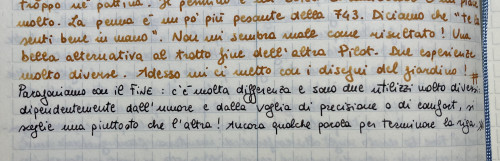 troppo né pattina. Se pennino è
molto. La penna è un po' più pesante della 743. Diciamo che "te la
senti bene in mano". Non mi sembra male come risultato! Una
bella alternativa al tratto fine dell'altra Pilot. Due esperienze
molto diverse. Adesso mi ci metto con i disegni del giardino!
Paragoniamo con il FINE: c'è molta differenza e sono due utilizzi molto diversi
dipendentemente dall'umore e dalla voglia di precisione o di comfort, si
sceglie una piuttosto che l'altra! Ancora qualche parola per terminare la riga